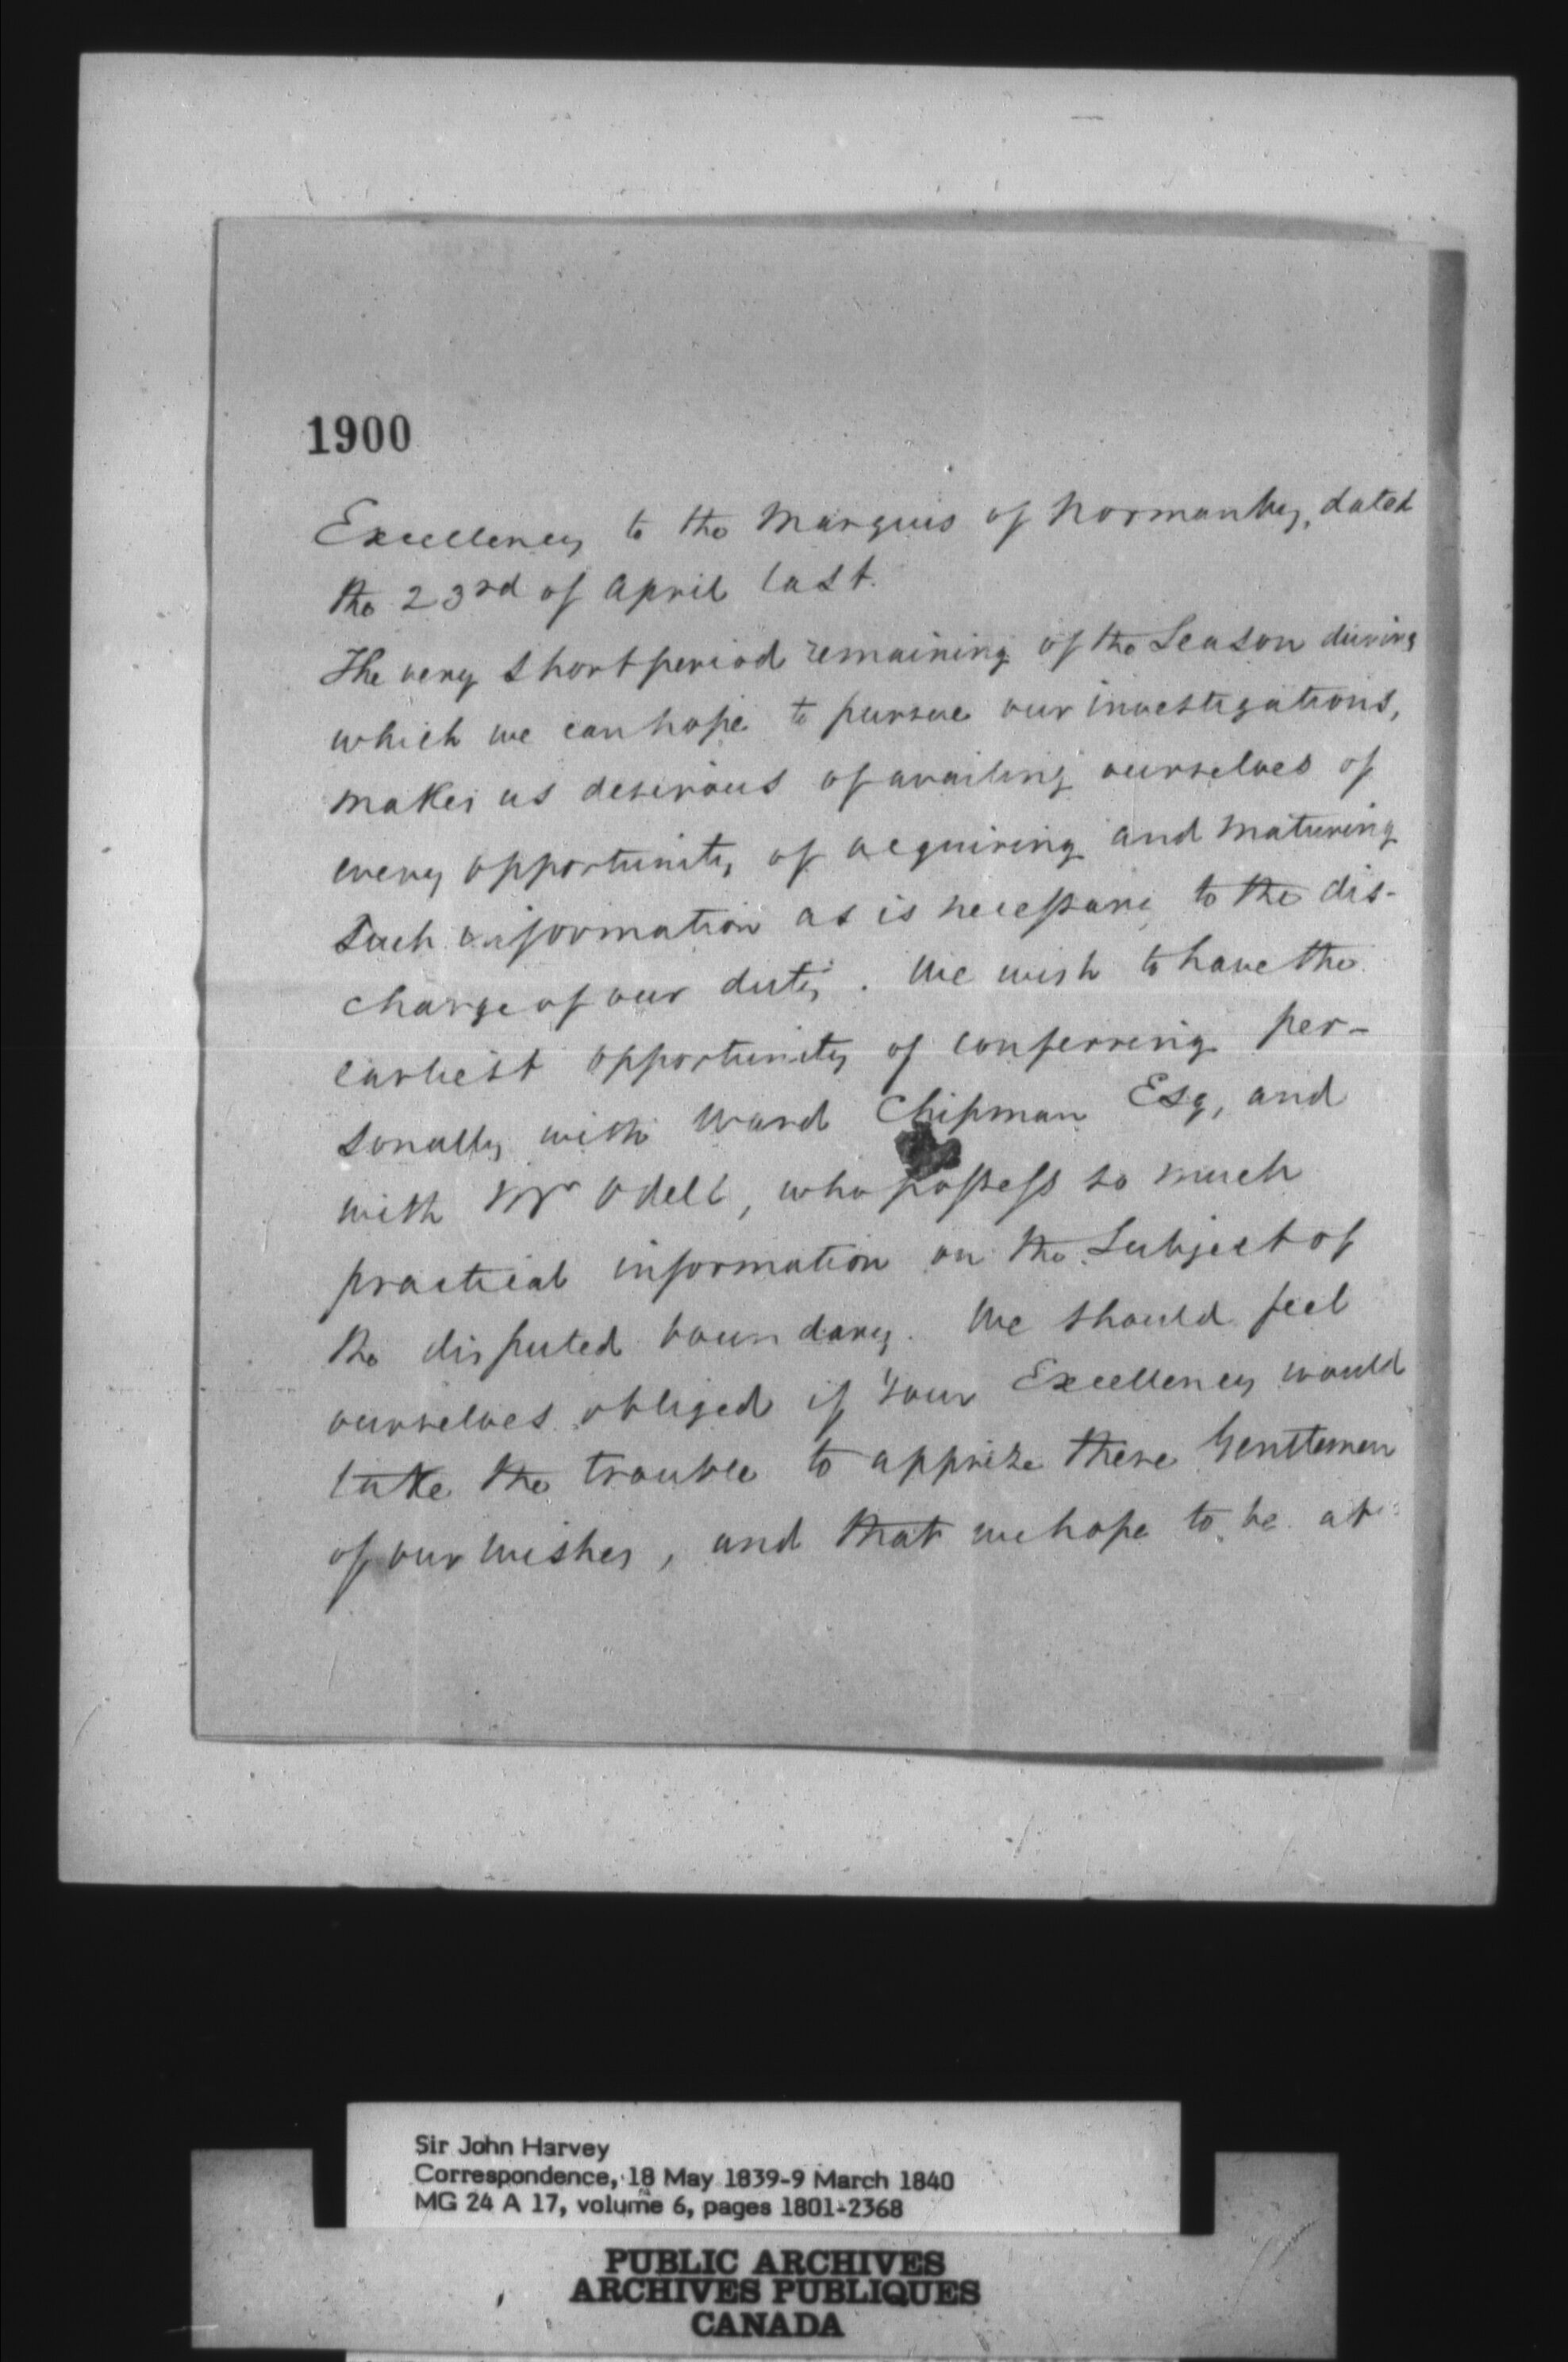 1900
Excellency to the Marquis of Normanby, dated
the 23rd of April last.
The very short period remaining of the Season during
which we can hope to pursue our investigations,
makes us desirous of availing ourselves of
every opportunity of acquiring and maturing
such information as is necessary to the dis-
charge of our duty. We wish to have the
earliest opportunity of conferring per-
sonally with Ward Chipman Esq, and
with Mr Odell, who possess so much
practical information on the Subject of
the disputed boundary. We should feel
ourselves obliged if Your Excellency would
take the trouble to apprize these Gentlemen
of our wishes, and that we hope to be at
Sir John Harvey
Correspondence, 18 May 1839-9 March 1840
MG 24 A 17, volume 6, pages 1801-2368
PUBLIC ARCHIVES
ARCHIVES PUBLIQUES
CANADA